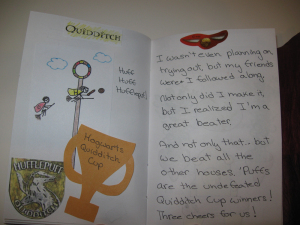 QUIDDITCH
Huff
Huff
Hufflepuff
Hogwarts
Quidditch
Cup
HUFFLEPUFF
I wasn't even planning on
trying out, but my friends
were & I followed along.
Not only did I make it,
but I realized I'm a
great beater.
And not only that... but
we beat all the
other houses. 'Puffs
are the undefeated
Quidditch Cup winners!
Three cheers for us!